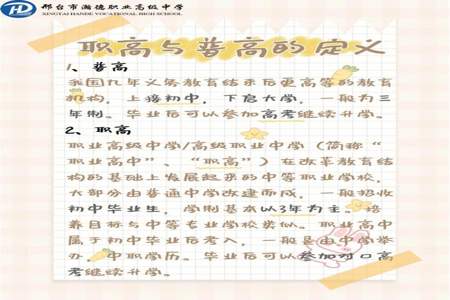 邢台市瀚德职业高级中学
XINGTAI HANDE VOCATIONAL HIGH SCHOOL
职高与普高的定义
1、普高
我国九年义务教育结束后更高等的教育
机构，上接初中，下启大学，一般为三
年制。毕业后可以参加高考继续升学。
2、职高
职业高级中学/高级职业中学（简称“
职业高中”、“职高”）在改革教育结
构的基础上发展起来的中等职业学校，
大部分由普通中学改建而成，一般招收
初中毕业生，学制基本以3年为主。培
养目标与中等专业学校类似。职业高中
属于初中毕业后考入，一般是由中学举
办，中职学历。毕业后可以参加对口高
考继续升学。